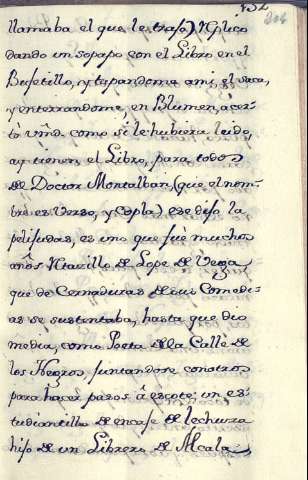 llamaba el que le trajo) Replicó
dando un sopapo con el Libro en el
Bufetillo, y tapandome a mi el saca,
y enterrandome, en Blumen, acer-
to vmd. como si le hubiera leido,
ay tienen el Libro, para todos
de Doctor Montalban, (que el nom-
bre es Verso, y Copla) ese dijo la
pelifudas, es uno que fué muchos
años Retacillo de Lope de Vega
que de Cernaduras de sus Comedi-
as se sustentaba, hasta que dio
media, como Poeta de la Calle de
los Negros juntandose con otros
para hacer pasos â escote: un es-
tudiantillo de encaje de lechuza
hijo de un Librero de Alcala